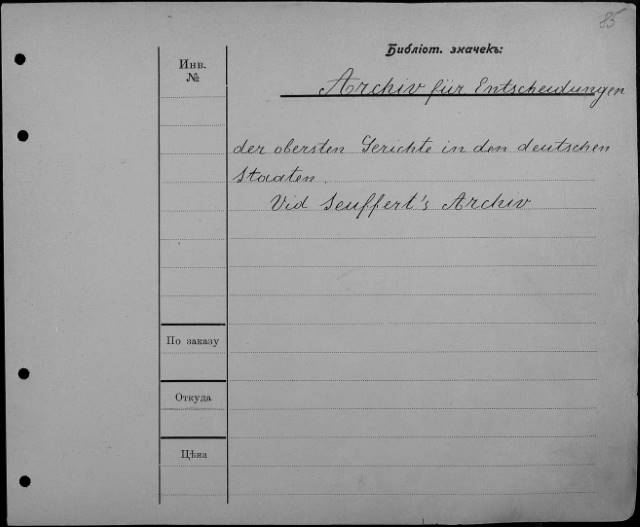 85
Библіот. значекъ:
Инв.
№
Archiv für Entscheidungen
der obersten Gerichte in den deutschen
Staaten.
Vid Seuffert's Archiv
По заказу
Откуда
Цѣна